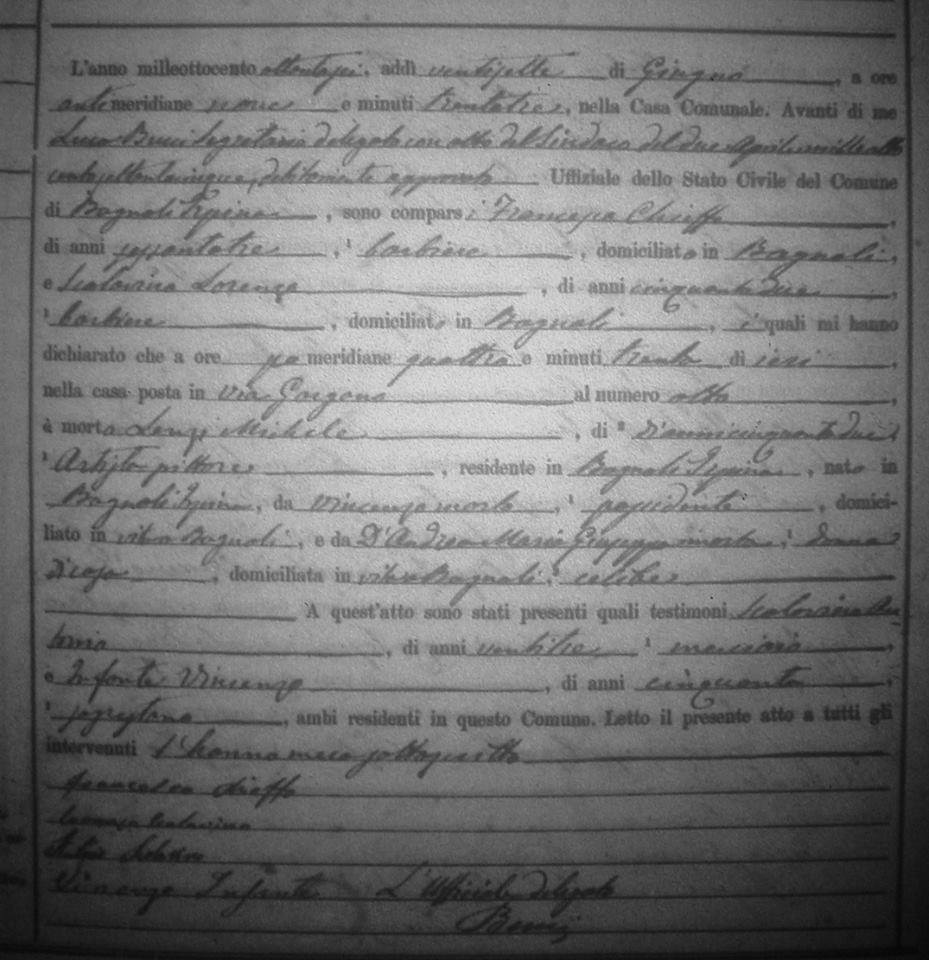 L'anno milleottocento ottantasei, addì ventisette di Giugno, a ore
antimeridiane nove e minuti trentatre, nella Casa Comunale. Avanti di me
Luca Bucci Segretario delegato con atto del Sindaco del due Aprile mille otto
cento ottantacinque, debitamente approvato Uffiziale dello Stato Civile del Comune
di Bagnoli Irpino, sono comparsi Francesco Chieffo,
di anni sessantatre, barbiere, domiciliato in Bagnoli,
e Scalovino Lorenzo, di anni cinquantadue,
barbiere, domiciliato in Bagnoli, i quali mi hanno
dichiarato che a ore pomeridiane quattro e minuti trenta di ieri,
nella casa posta in via Gargano al numero otto,
è morto Lenzi Michele, di d'anni cinquantadue
Artista pittore, residente in Bagnoli Irpino, nato in
Bagnoli Irpino, da Vincenzo morto, possidente, domici-
liato in vita a Bagnoli, e da D'Andrea Maria Giuseppa morta, donna
di casa, domiciliata in vita a Bagnoli, celibe
A quest'atto sono stati presenti quali testimoni Scalovino An
tonio, di anni ventitre,
e Infante Vincenzo, di anni cinquanta,
sagrestano, ambi residenti in questo Comune. Letto il presente atto a tutti gli
intervenuti l'hanno meco sottoscritto
Francesco Chieffo
Lorenzo Scalovino
Vincenzo Infante L'Ufficiale delegato
Bucci